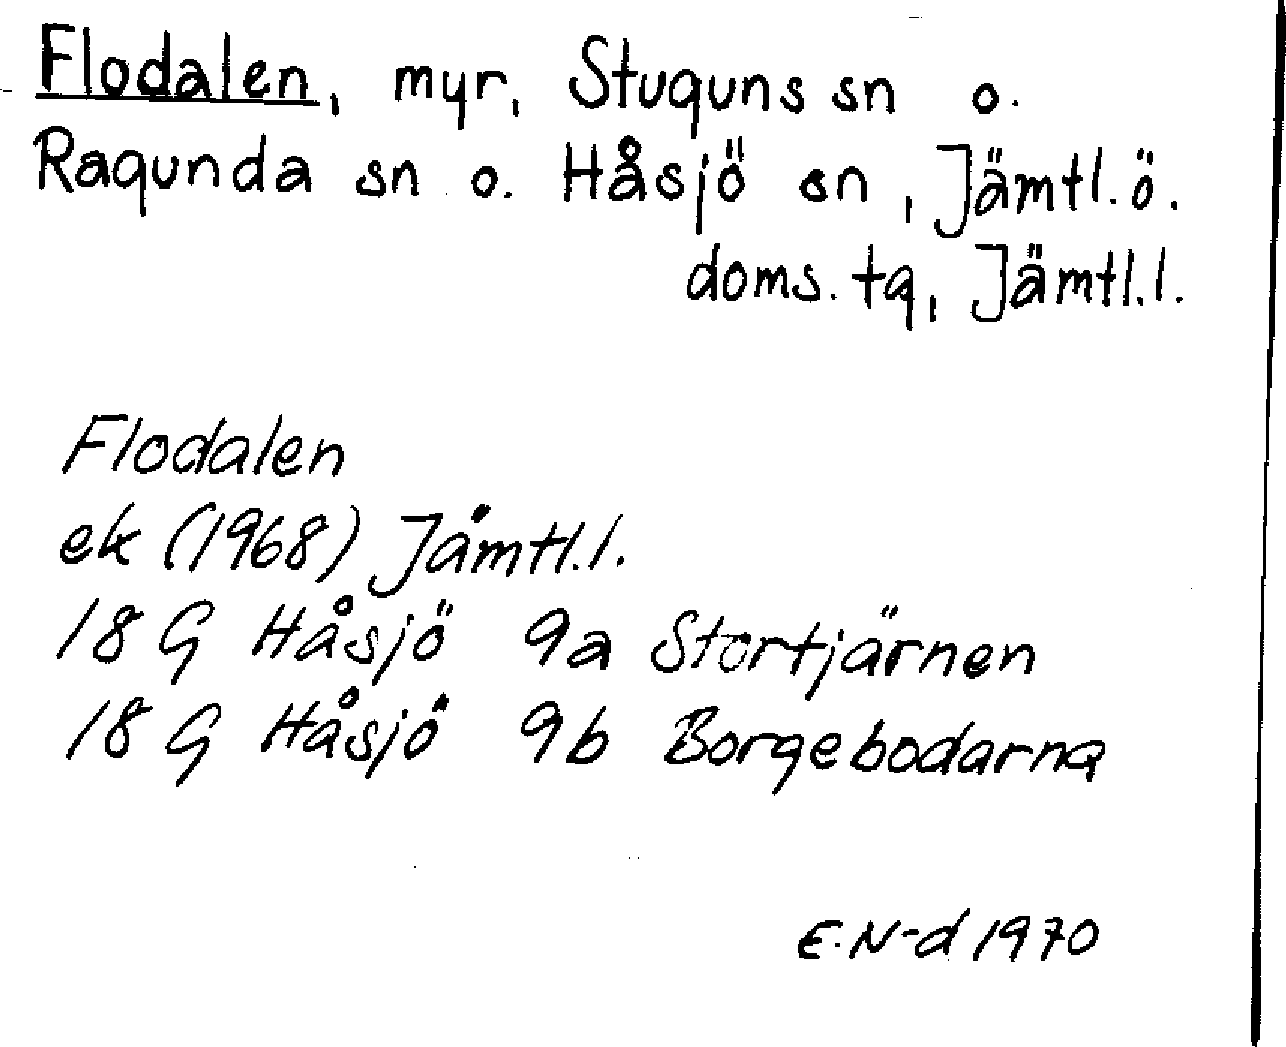 Flodalen, myr, Stuguns sn o.
Ragunda sn o. Håsjö sn, Jämtl.ö.
doms. tg, Jämtl.l.
Flodalen
ek (1968) Jämtl.l.
18 G Håsjö 9a Stortjärnen
18 G Håsjö 9b Borgebodarna
E.N-d 1970